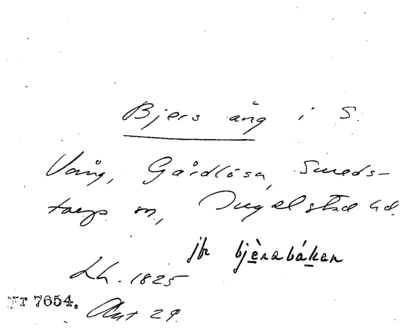 Bjers äng i S.
Vång, Gårdlösa, Smeds-
torps sn, Ingelstad hd.
jfr bjèrabákan
Lh. 1825
NT 7654. Akt 29.